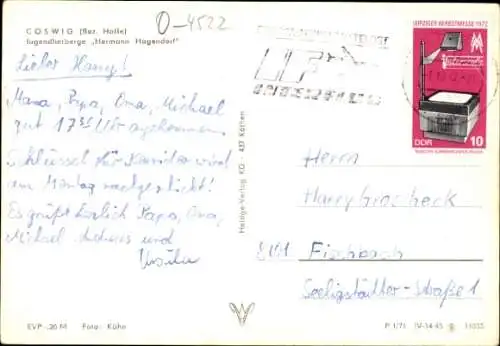 COSWIG (Bez. Halle)
Jugendherberge „Hermann Hagendorf"
O-4522
Lieber Harry!
Mama, Papa, Oma, Michael
gut 17³⁵ Uhr angekommen.
Schlüssel für wird
am Montag nachgeschickt!
Es grüßt herzlich Papa, Oma,
Michael und
Ursula
EVP -,20 M Foto: Kühn
Heldge-Verlag KG - 437 Köthen
LEIPZIGER HERBSTMESSE 1972
DDR 10
Herrn
Harry Grocheck
8101 Fischbach
Seeligstädter-Straße 1
P 1/71 IV-14-45 11035